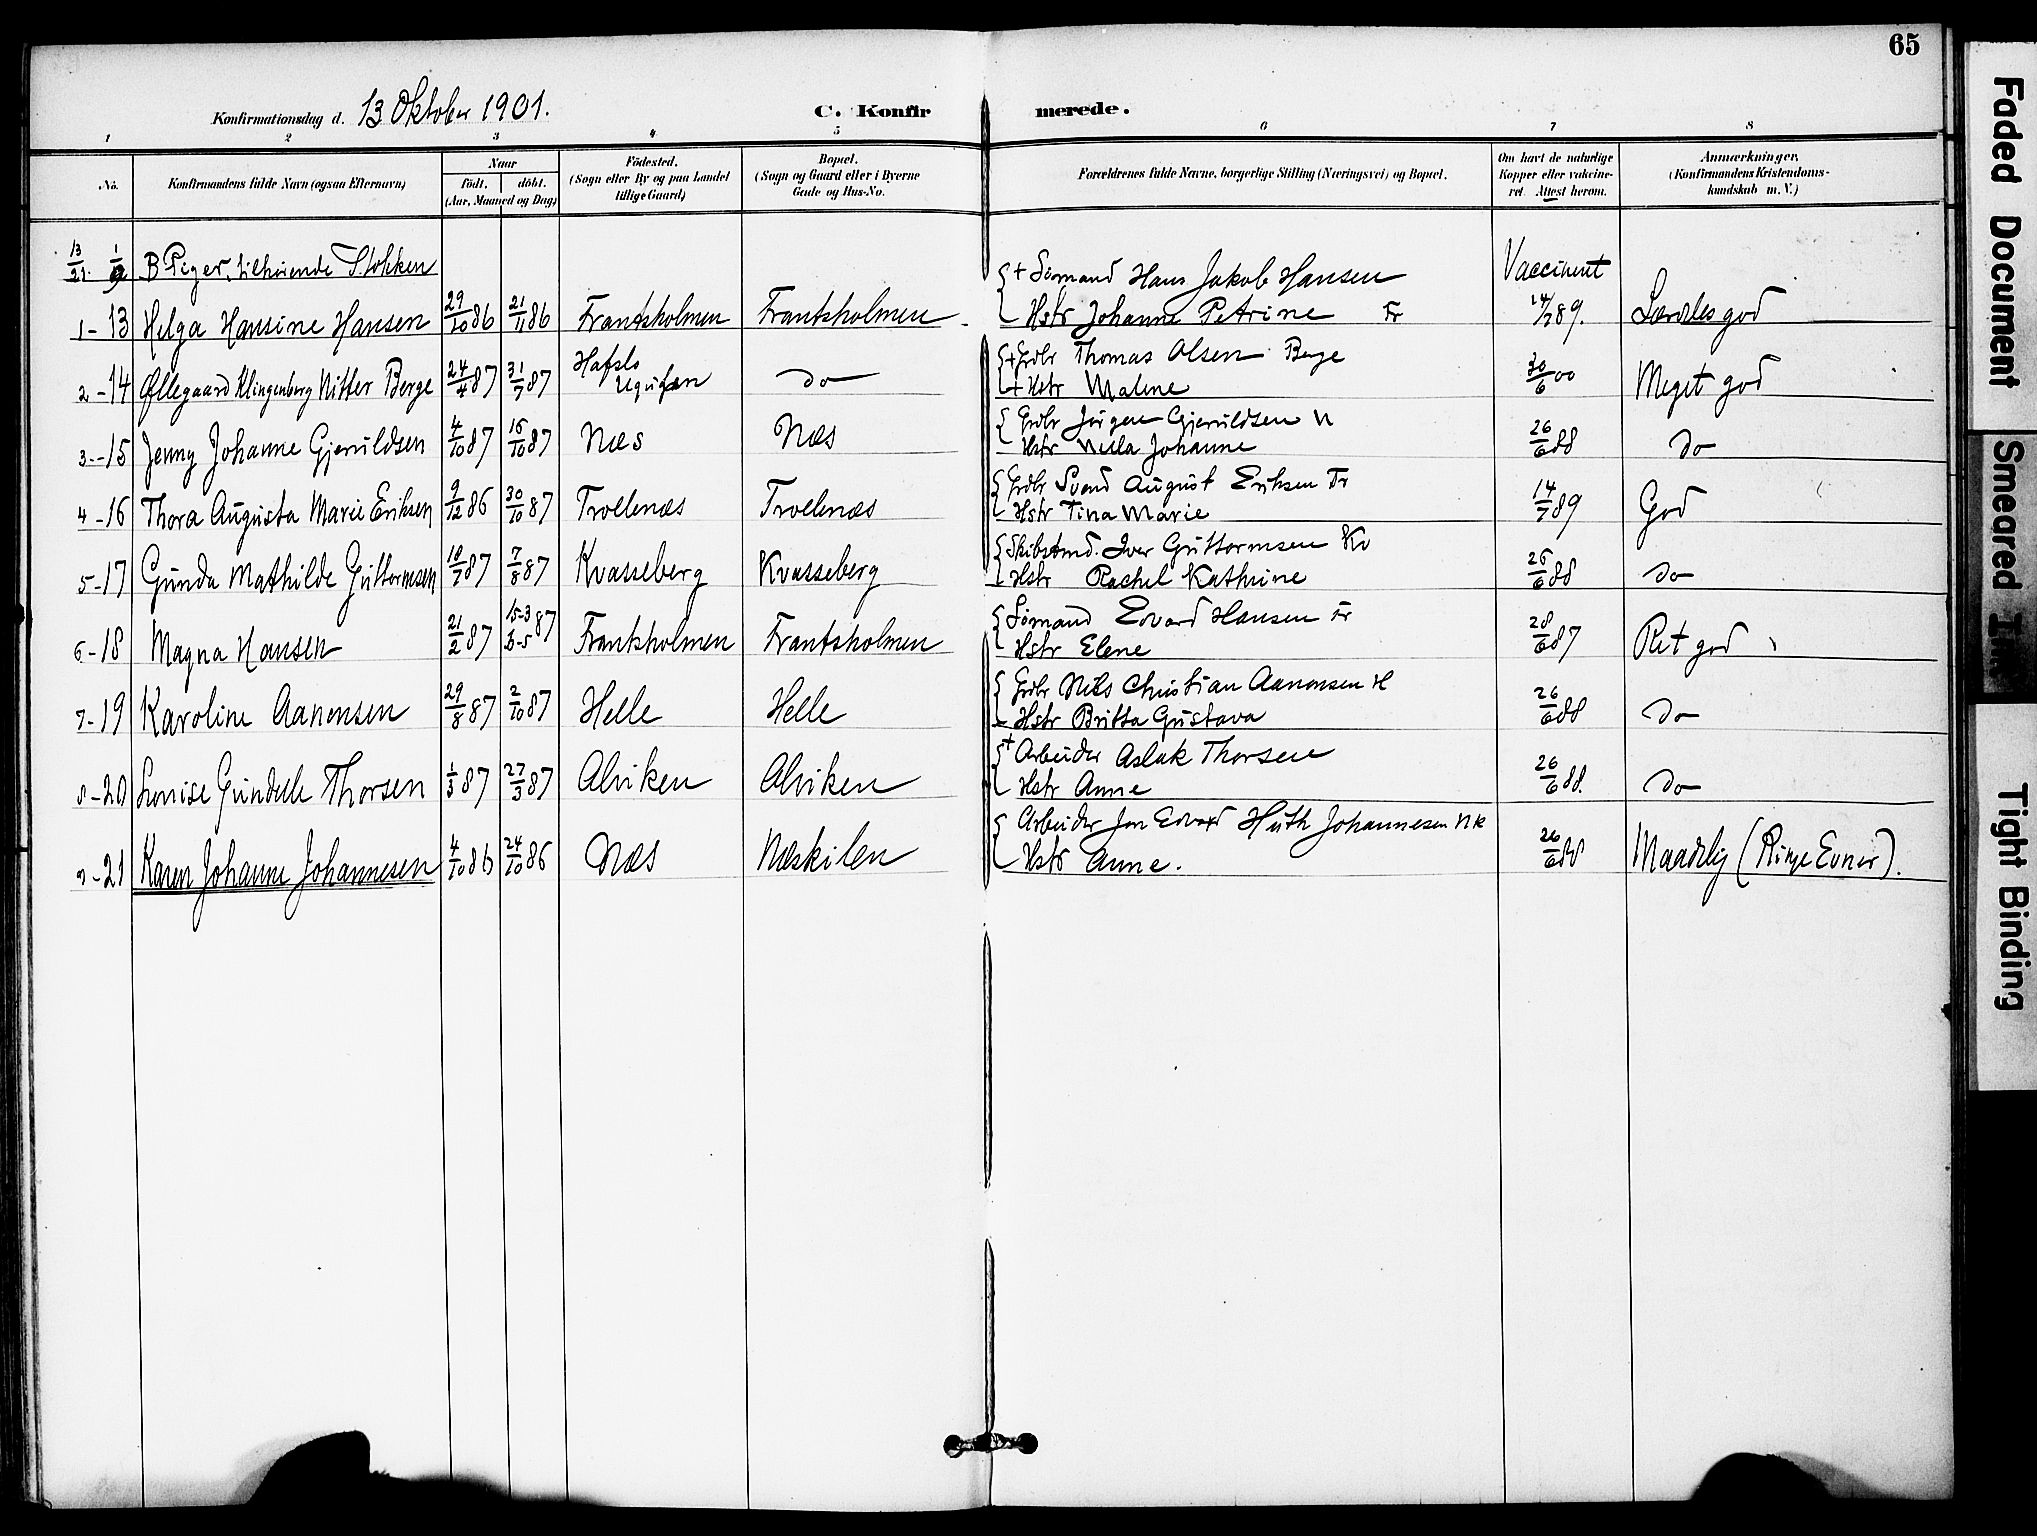 65
Konfirmationsdag d. 13 Oktober 1901. C. Konfirmerede.
1 2 3 4 5 6 7 8
No. Konfirmandens fulde Navn (ogsaa Efternavn) Naar födt. döbt. (Aar, Maaned og Dag) Födested. (Sogn eller By og paa Landet tillige Gaard) Bopæl. (Sogn og Gaard eller i Byerne Gade og Hus-No. Forældrenes fulde Navne, borgerlige Stilling (Næringsvei) og Bopæl. Om havt de naturlige Kopper eller vaccineret. Attest herom. Anmærkninger. (Konfirmandens Kristendomskundskab m. V.)
13/21. 1/9 B Piger, tilhörende Stokken Vaccineret
+ Sömand Hans Jakob Hansen
1-13 Helga Hansine Hansen 29/10 86 21/11 86 Frantsholmen Frantsholmen Hstr Johanne Petrine Fr 14/7 89. Særdeles god
+ Grdbr Thomas Olsen Berge
2-14 Øllegaard Klingenberg Nitter Berge 24/4 87 31/7 87 Hafslo do + Hstr Malene 30/6 00 Meget god
Grdbr Jörgen Gjeruldsen N
3-15 Jenny Johanne Gjeruldsen 4/10 87 16/10 87 Næs Næs Hstr Johanne 26/6 88 do
Grdbr Svend August Eriksen Tr
4-16 Thora Augusta Marie Eriksen 9/12 86 30/10 87 Trollenæs Trollenæs Hstr Tina Marie 14/7 89 God
Skibstmd. Iver Guttormsen Kv
5-17 Gunda Mathilde Guttormsen 10/7 87 7/8 87 Kvasseberg Kvasseberg Hstr Rachel Kathrine 26/6 88 do
Sömand Edvard Hansen Fr
6-18 Magna Hansen 21/2 87 15-3 87 Frantsholmen Frantsholmen Hstr Elene 28/6 87 Ret god
Grdbr Nils Christian Aanonsen H
7-19 Karoline Aanonsen 29/8 87 2/10 87 Helle Helle Hstr Britta Gustava 26/6 88 do
+ Arbeider Aslak Thorsen
8-20 Lovise Gundelle Thorsen 1/3 87 27/3 87 Alviken Alviken Hstr Anne 26/6 88. do
Arbeider Jon Edvard Huth Johannesen Nk
9-21 Karen Johanne Johannesen 4/10 86 24/10 86 Næs Næskilen Hstr Anne. 26/6 88 Maadelig (Ringe Evner).
Faded Document
Smeared Ink
Tight Binding